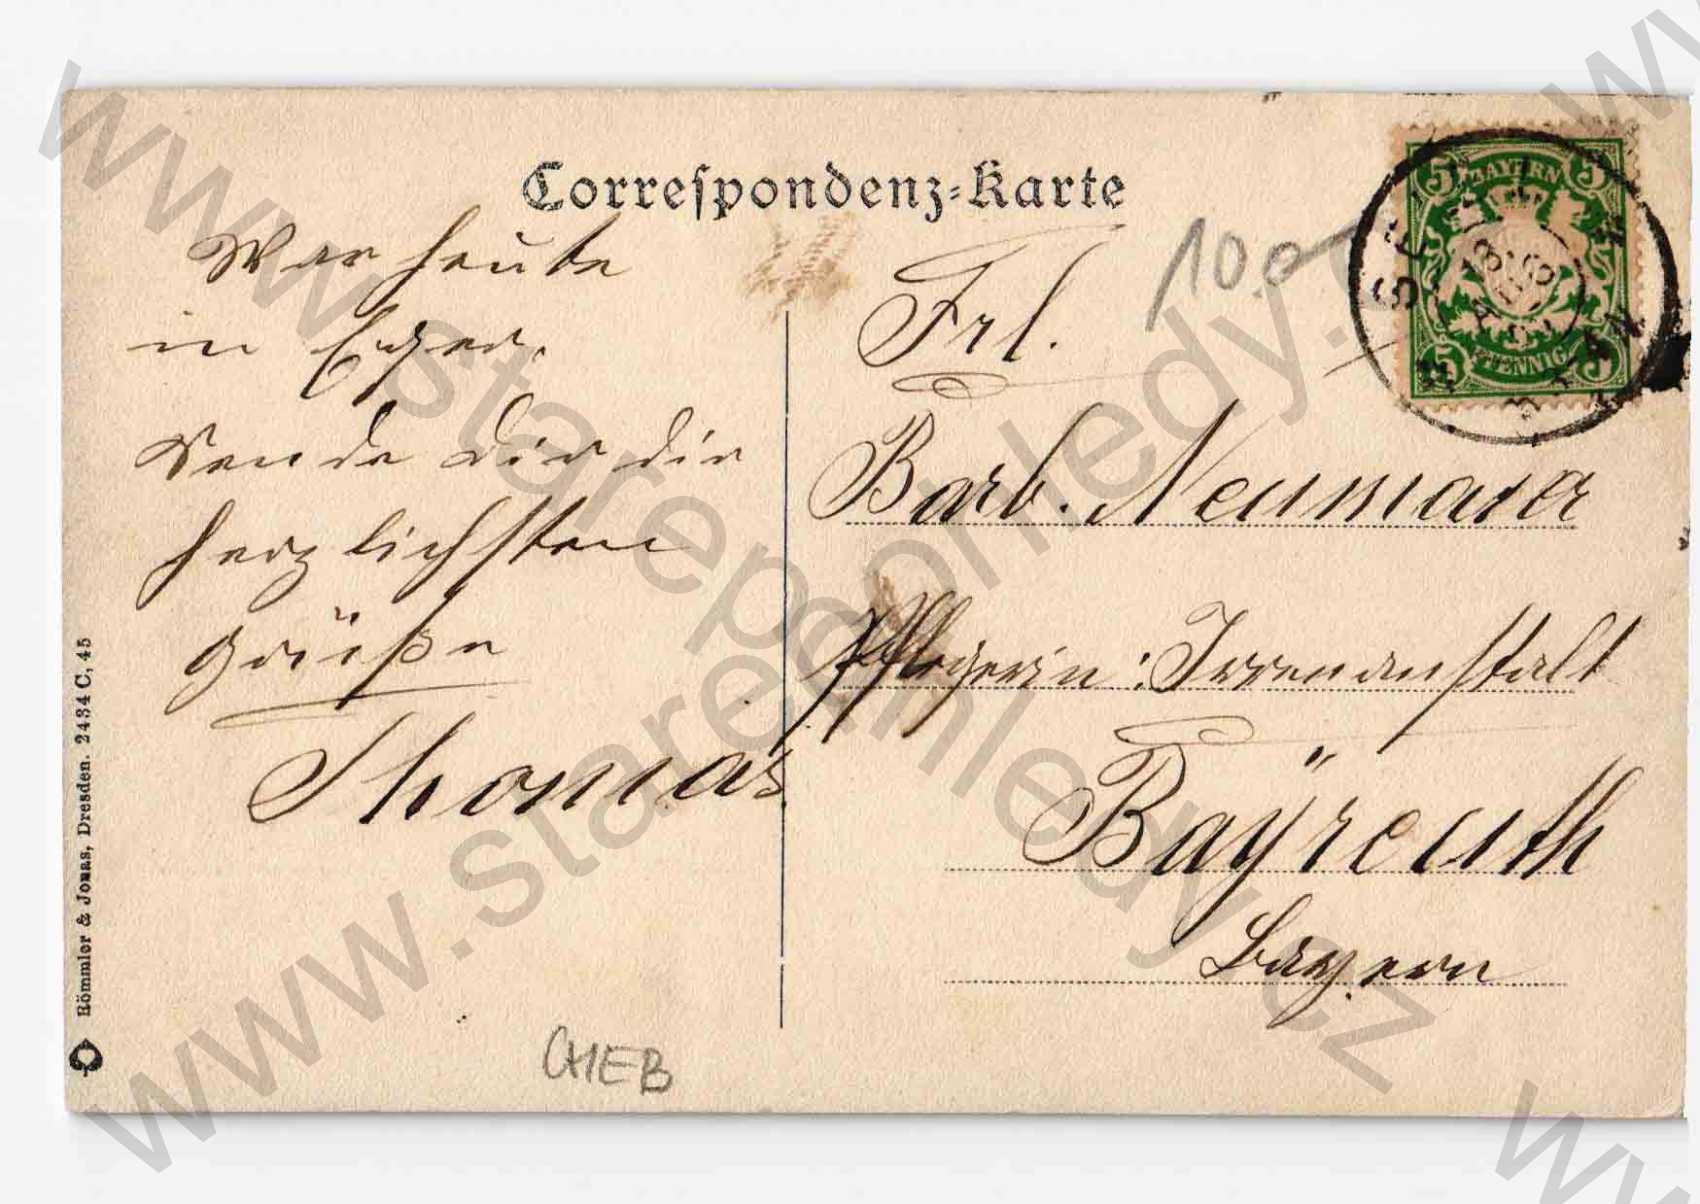 Correspondenz-Karte
War heute
in Eger.
Sende Dir die
herzlichsten
Grüße
Thomas
Frl.
Barb. Neumaier
Pflegerin: Irrenanstalt
Bayreuth
Bayern
100
BAYERN
5 5
5 PFENNIG 5
BAHN
Römmler & Jonas, Dresden. 2434 C, 45
CHEB
www.starepohledy.cz
www.starepohledy.cz